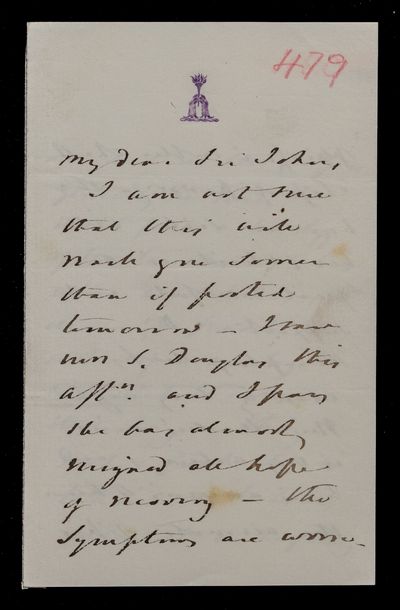 479
My dear Sir John,
I am not sure
that this will
reach you sooner
than if posted
tomorrow – I saw
Miss S. Douglas this
aftn. and I fear
she has almost
resigned all hope
of recovery – the
symptoms are worse –